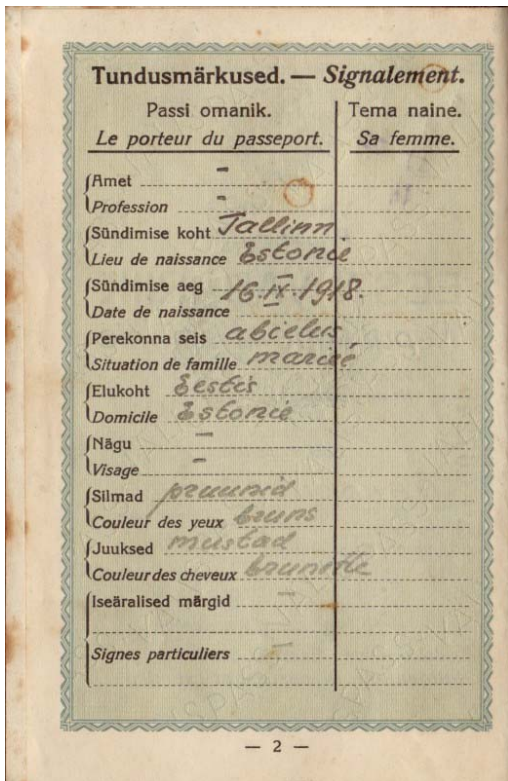 Tundusmärkused. — Signalement.
Passi omanik.
Le porteur du passeport.
Tema naine.
Sa femme.
Amet -
Profession -
Sündimise koht Tallinn
Lieu de naissance Estonie
Sündimise aeg 16. IX. 1918.
Date de naissance
Perekonna seis abielus
Situation de famille marié
Elukoht Eestis
Domicile Estonie
Nägu -
Visage -
Silmad pruunid
Couleur des yeux bruns
Juuksed mustad
Couleur des cheveux brunette
Iseäralised märgid -
Signes particuliers -
— 2 —